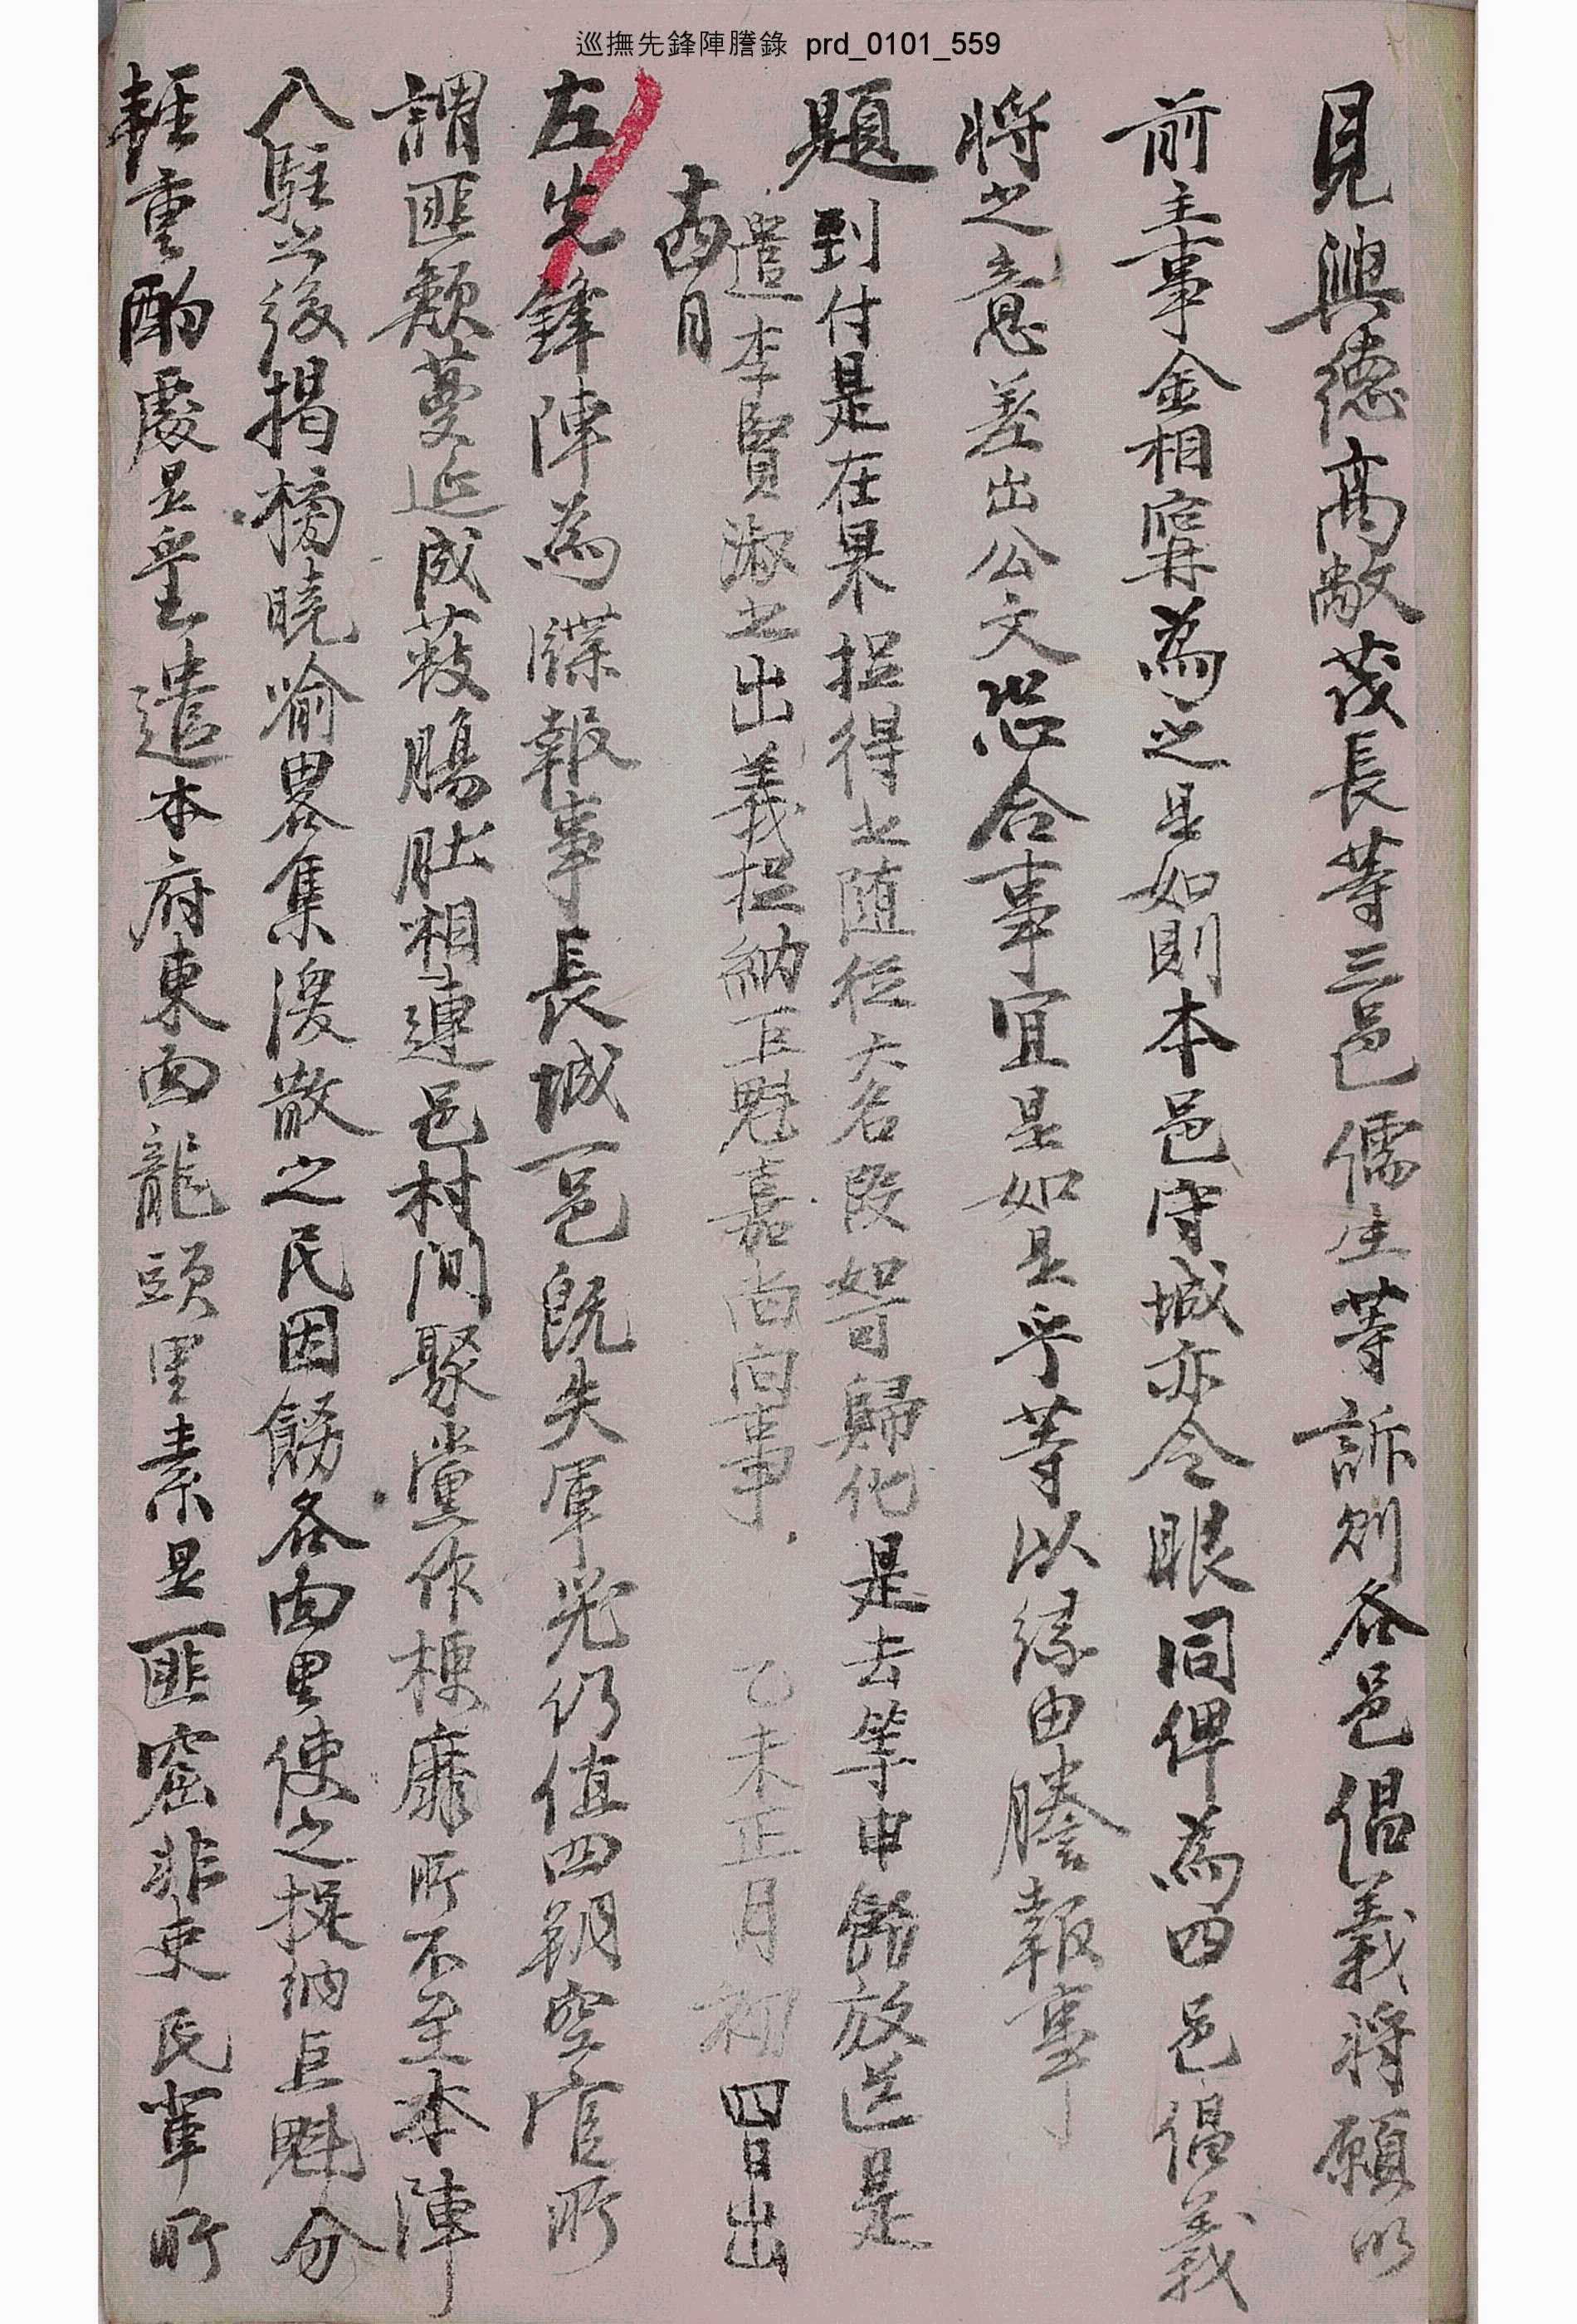 巡撫先鋒陣謄錄 prd_0101_559
見興德高敞茂長等三邑儒生等訴則各邑倡義將願以
前主事金相寯為之是如則本邑守城亦令眼同俾為四邑倡義
將之意差出公文恐合事宜是如是乎等以緣由謄報事
題到付是在果捉得之隨從六名段恕可歸化是去等申飭放送是
遣李賢淑之出義捉納巨魁嘉尚向事 乙未正月初四日出
十四日
左先鋒陣為牒報事長城一邑旣失軍器仍値四朔空官所
謂匪類蔓延成藪腸肚相連邑村間聚黨作梗靡所不至本陣
入駐之後揭榜曉喩畧集渙散之民因飭各面里使之捉納巨魁分
輕重酌處是乎遣本府東面龍頭里素是匪窟非吏民輩所